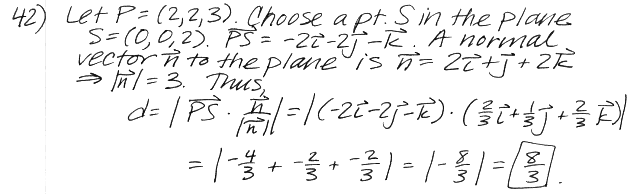 42) Let P = (2,2,3). Choose a pt. S in the plane
S = (0,0,2). \vec{PS} = -2\vec{i} - 2\vec{j} - \vec{k}. A normal
vector \vec{n} to the plane is \vec{n} = 2\vec{i} + \vec{j} + 2\vec{k}
⇒ |\vec{n}| = 3. Thus,
d = | \vec{PS} · \frac{\vec{n}}{|\vec{n}|} | = |(-2\vec{i} - 2\vec{j} - \vec{k}) · (\frac{2}{3}\vec{i} + \frac{1}{3}\vec{j} + \frac{2}{3}\vec{k})|
= |-\frac{4}{3} + -\frac{2}{3} + \frac{-2}{3}| = |-\frac{8}{3}| = \frac{8}{3}.